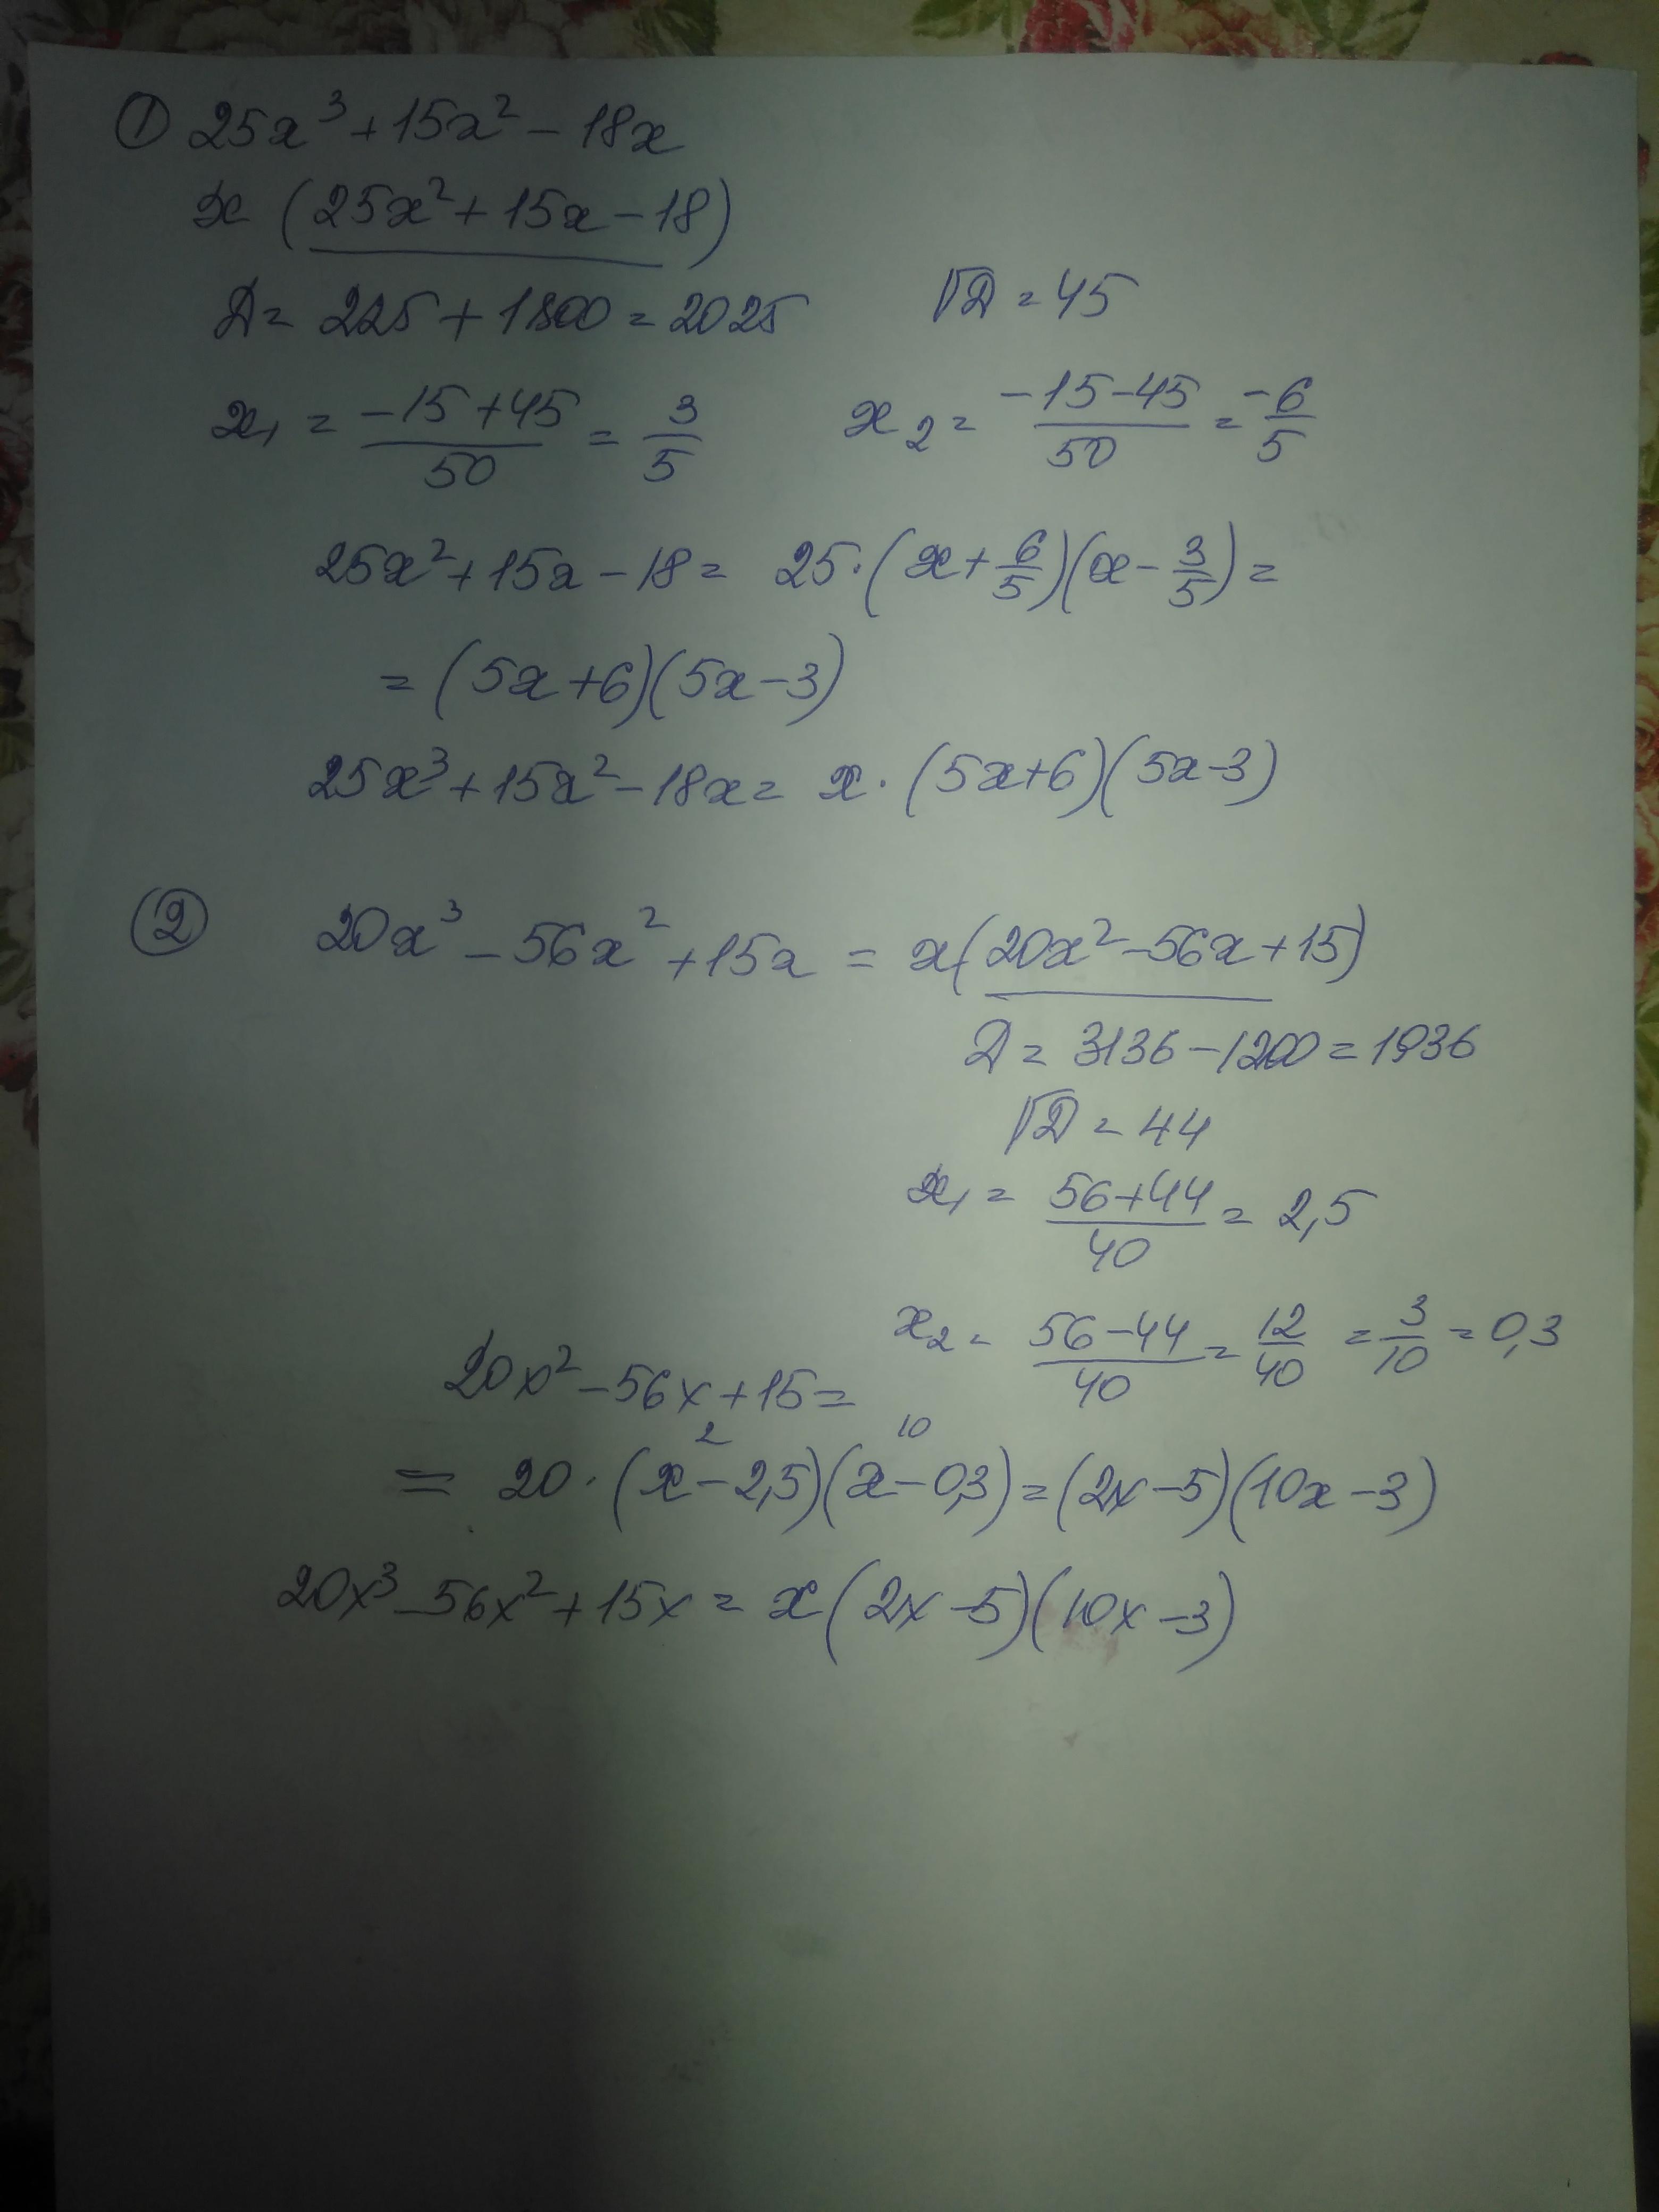 ① 25x³ + 15x² − 18x
x (25x² + 15x − 18)
D = 225 + 1800 = 2025   √D = 45
x₁ = (−15 + 45)/50 = 3/5   x₂ = (−15 − 45)/50 = −6/5
25x² + 15x − 18 = 25·(x + 6/5)(x − 3/5) =
= (5x + 6)(5x − 3)
25x³ + 15x² − 18x = x·(5x + 6)(5x − 3)
② 20x³ − 56x² + 15x = x(20x² − 56x + 15)
D = 3136 − 1200 = 1936
√D = 44
x₁ = (56 + 44)/40 = 2,5
x₂ = (56 − 44)/40 = 12/40 = 3/10 = 0,3
20x² − 56x + 15 =
2   10
= 20·(x − 2,5)(x − 0,3) = (2x − 5)(10x − 3)
20x³ − 56x² + 15x = x(2x − 5)(10x − 3)